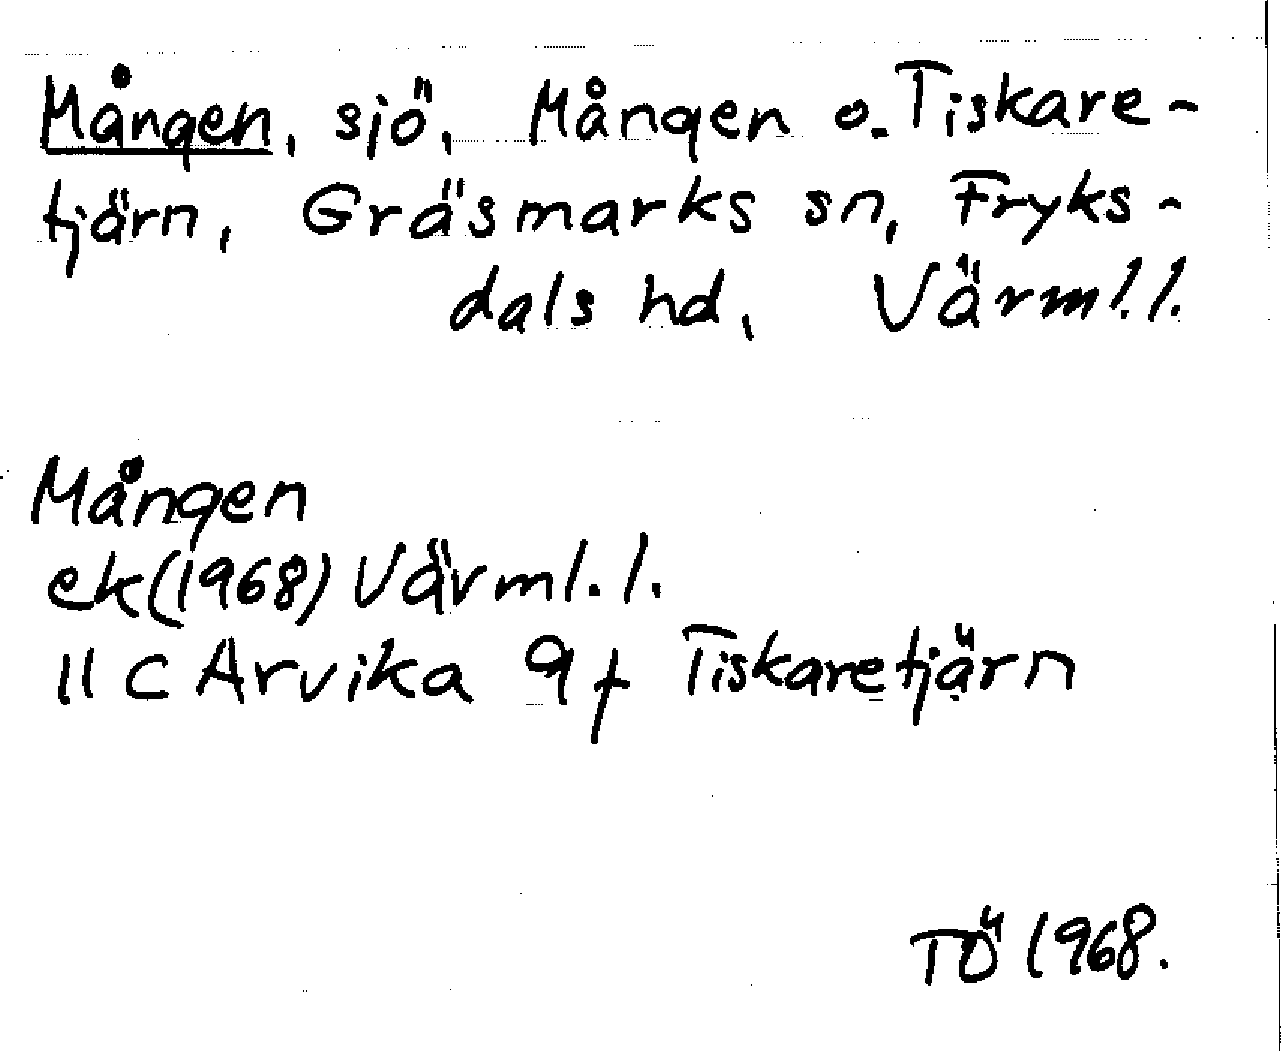 Mången, sjö, Mången o. Tiskare-
tjärn, Gräsmarks sn, Fryks-
dals hd, Värml. l.
Mången
ek (1968) Värml. l.
11 C Arvika 9 f Tiskaretjärn
TÖ 1968.